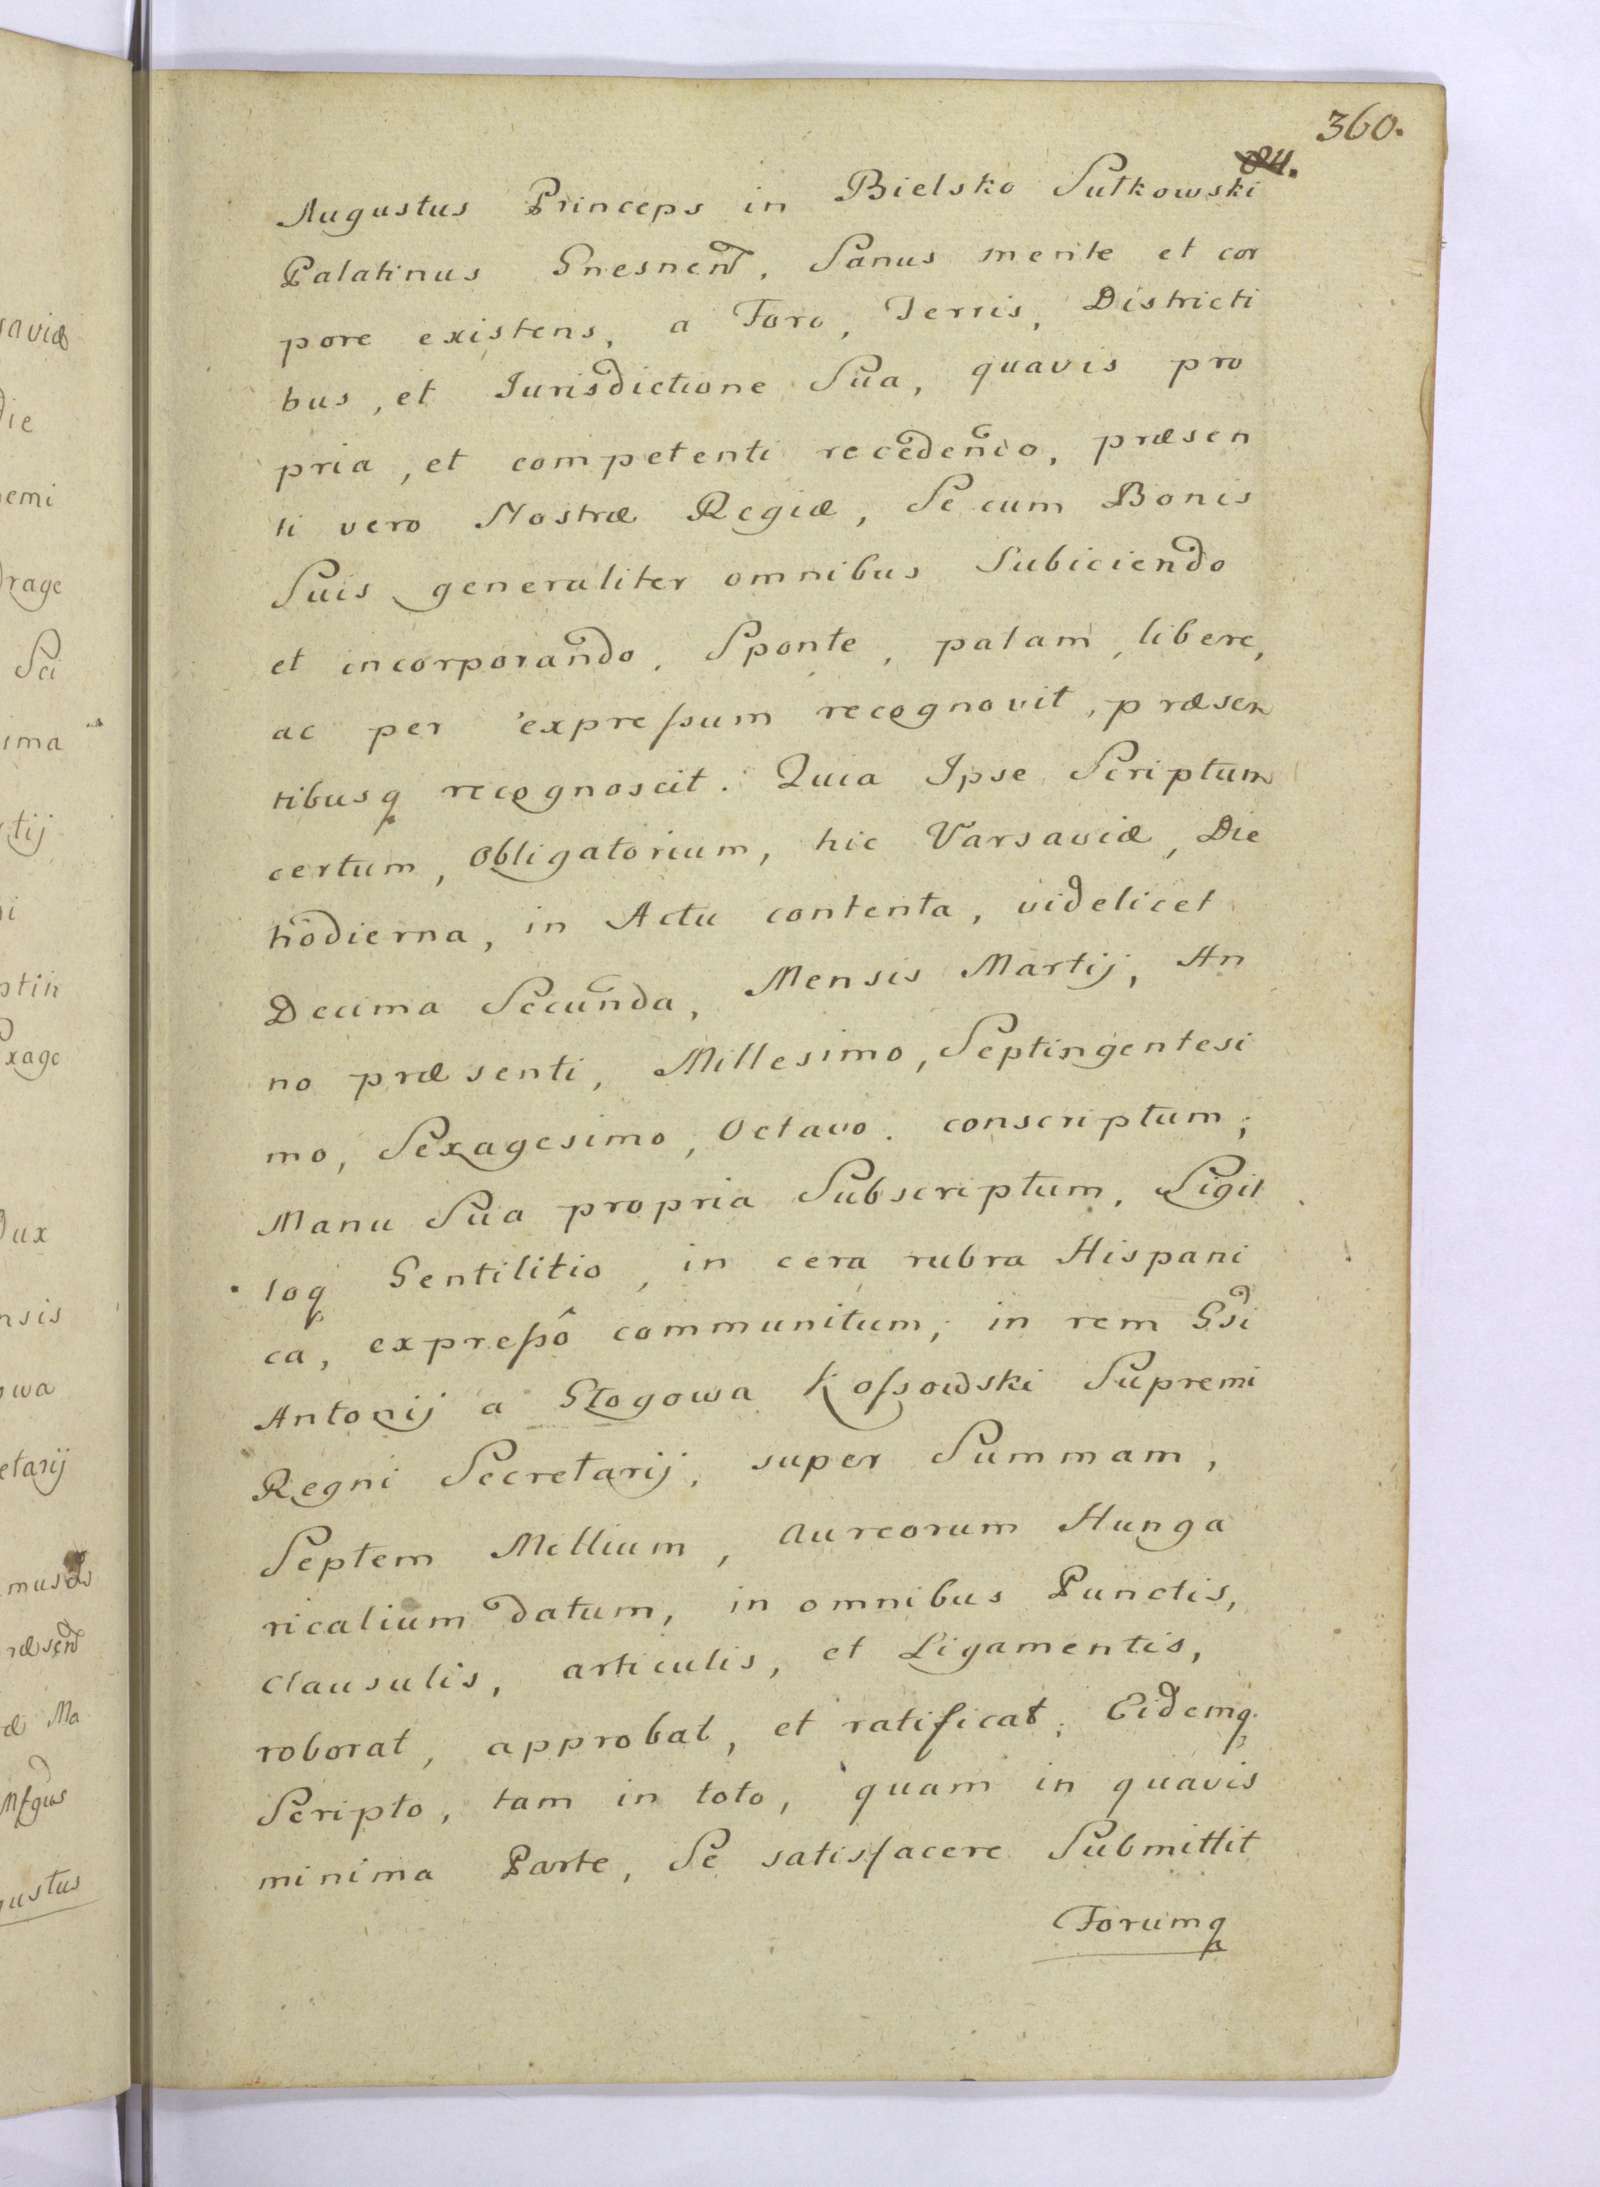 360.
84.
Augustus Princeps in Bielsko Sułkowski
Palatinus Gnesnen, Sanus mente et cor
pore existens, a Foro, Terris, Districti
bus, et Jurisdictione Sua, quavis pro
pria, et competenti recedendo, præsen
ti vero Nostræ Regiæ, Se cum Bonis
Suis generaliter omnibus Subiciendo
et incorporando, Sponte, palam, libere,
ac per expreſsum recognovit, præsen
tibusq recognoscit. Quia Ipse Scriptum
certum, Obligatorium, hic Varsaviæ, Die
hodierna, in Actu contenta, videlicet
Decima Secunda, Mensis Martij, An
no præsenti, Millesimo, Septingentesi
mo, Sexagesimo, Octavo. conscriptum;
Manu Sua propria Subscriptum, Sigil
loq Gentilitio, in cera rubra Hispani
ca, expreſsô communitum; in rem Gsi
Antonij a Głogowa Koſsowski Supremi
Regni Secretarij, super Summam,
Septem Millium, Aureorum Hunga
ricalium datum, in omnibus Punctis,
Clausulis, articulis, et Ligamentis,
roborat, approbat, et ratificat; Eidemq
Scripto, tam in toto, quam in quavis
minima Parte, Se satisfacere Submittit
Forumq
saviæ
die
emi
drage
Sci
ima
tij
ptin
xage
Dux
nsis
owa
etarij
ræsen
æ Ma
gustus